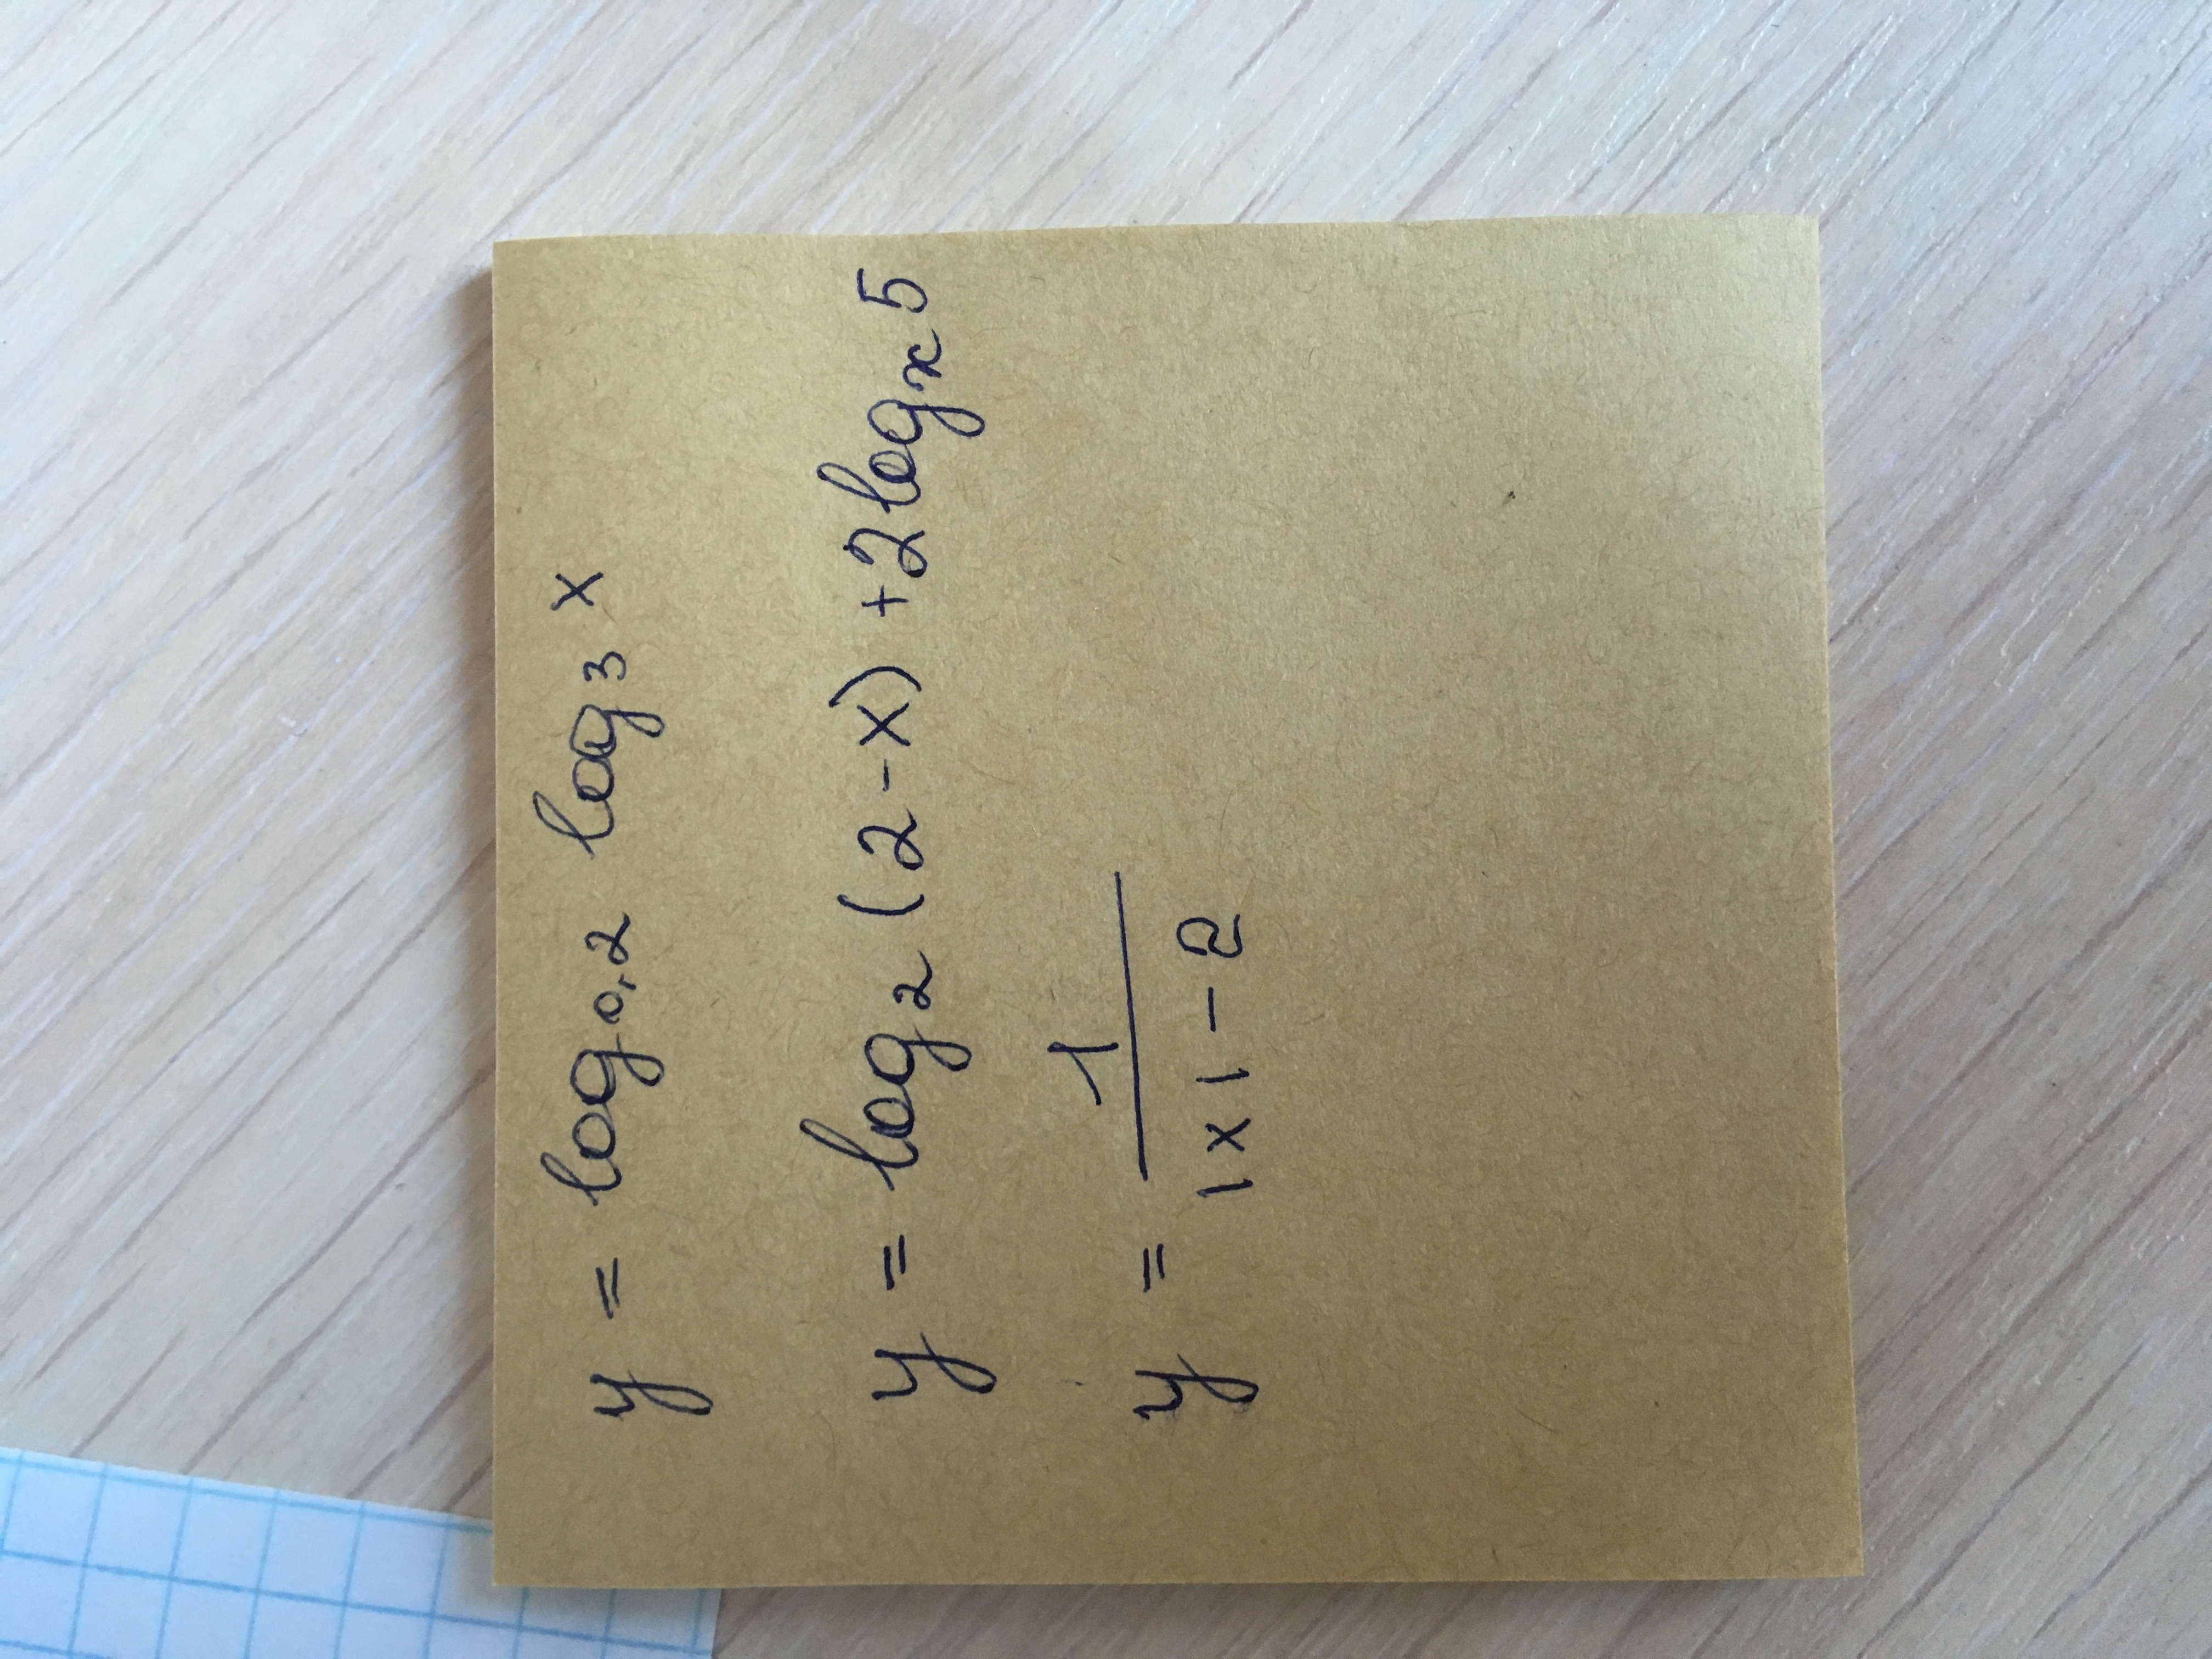 y = log₀,₂ log₃ x
y = log₂ (2-x) + 2logₓ5
y = 1/(|x|-2)